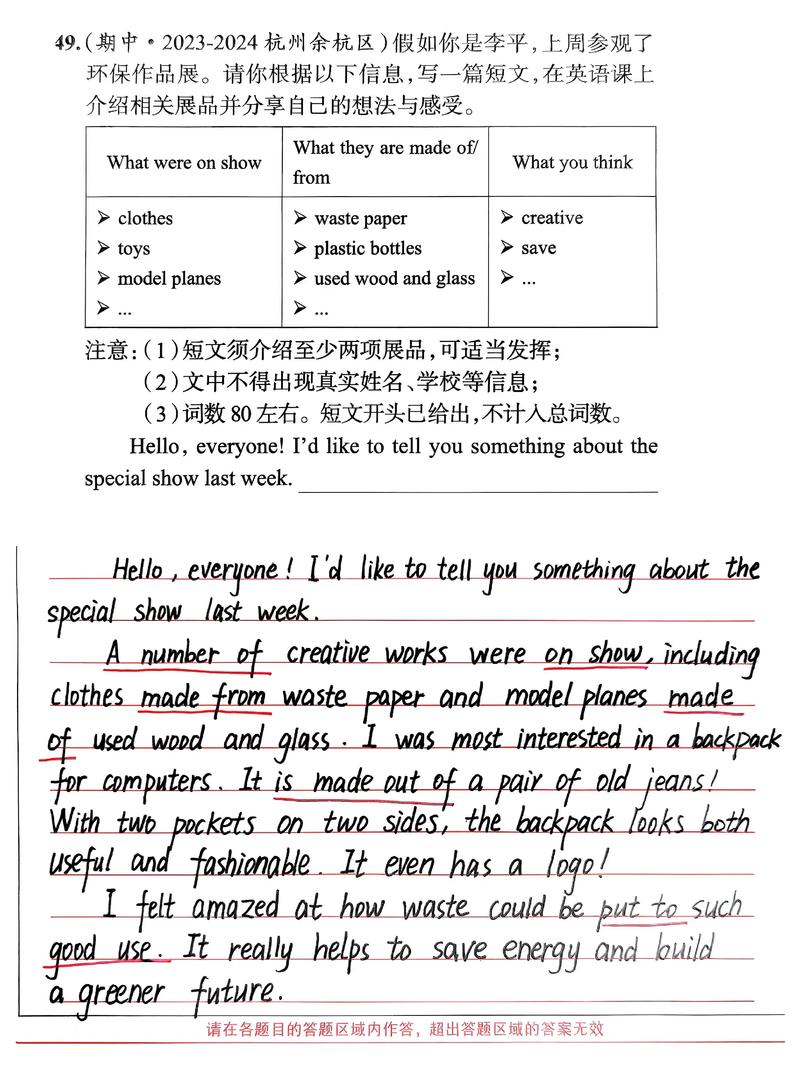 49.(期中·2023-2024杭州余杭区)假如你是李平,上周参观了
环保作品展。请你根据以下信息,写一篇短文,在英语课上
介绍相关展品并分享自己的想法与感受。
What were on show
What they are made of/
from
What you think
➢ clothes
➢ toys
➢ model planes
➢ ...
➢ waste paper
➢ plastic bottles
➢ used wood and glass
➢ ...
➢ creative
➢ save
➢ ...
注意:(1)短文须介绍至少两项展品,可适当发挥;
(2)文中不得出现真实姓名、学校等信息;
(3)词数80左右。短文开头已给出,不计入总词数。
Hello, everyone! I'd like to tell you something about the
special show last week.
Hello, everyone! I'd like to tell you something about the
special show last week.
A number of creative works were on show, including
clothes made from waste paper and model planes made
of used wood and glass. I was most interested in a backpack
for computers. It is made out of a pair of old jeans!
With two pockets on two sides, the backpack looks both
useful and fashionable. It even has a logo!
I felt amazed at how waste could be put to such
good use. It really helps to save energy and build
a greener future.
请在各题目的答题区域内作答，超出答题区域的答案无效